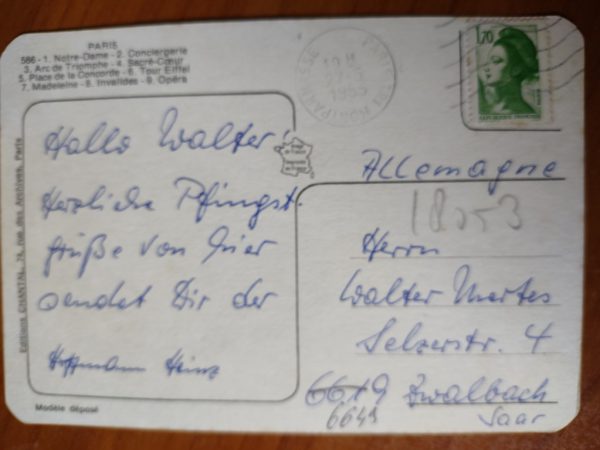 PARIS
586 - 1. Notre-Dame - 2. Conciergerie
3. Arc de Triomphe - 4. Sacré-Cœur
5. Place de la Concorde - 6. Tour Eiffel
7. Madeleine - 8. Invalides - 9. Opéra
Hallo Walter!
Herzliche Pfingst-
grüße von hier
sendet Dir der
Hoffmann Heinz
Editions CHANTAL, 74, rue des Archives, Paris
Modèle déposé
PARIS
1,70
Allemagne
Herrn
Walter
Selzerstr. 4
6619 Bwalbach
6641
Saar